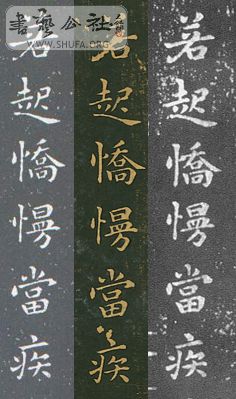 書藝公社
WWW.SHUFA.ORG
若起憍慢當疾
若起憍慢當疾
若起憍慢當疾